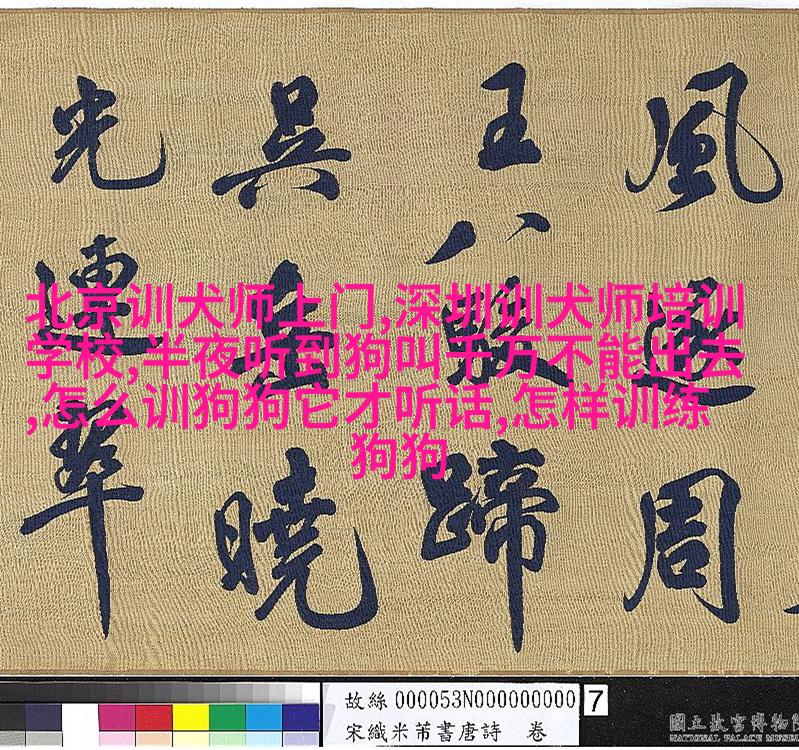 風逐周
王八駿蹄
吳岳曉
光連翠
北京训犬师上门,深圳训犬师培训
学校,半夜听到狗叫千万不能出去
,怎么训狗狗它才听话,怎样训练
狗狗
故絲000053N000000000 7
宋織米芾書唐詩 卷
國立故宮博物院
NATIONAL PALACE MUSEUM